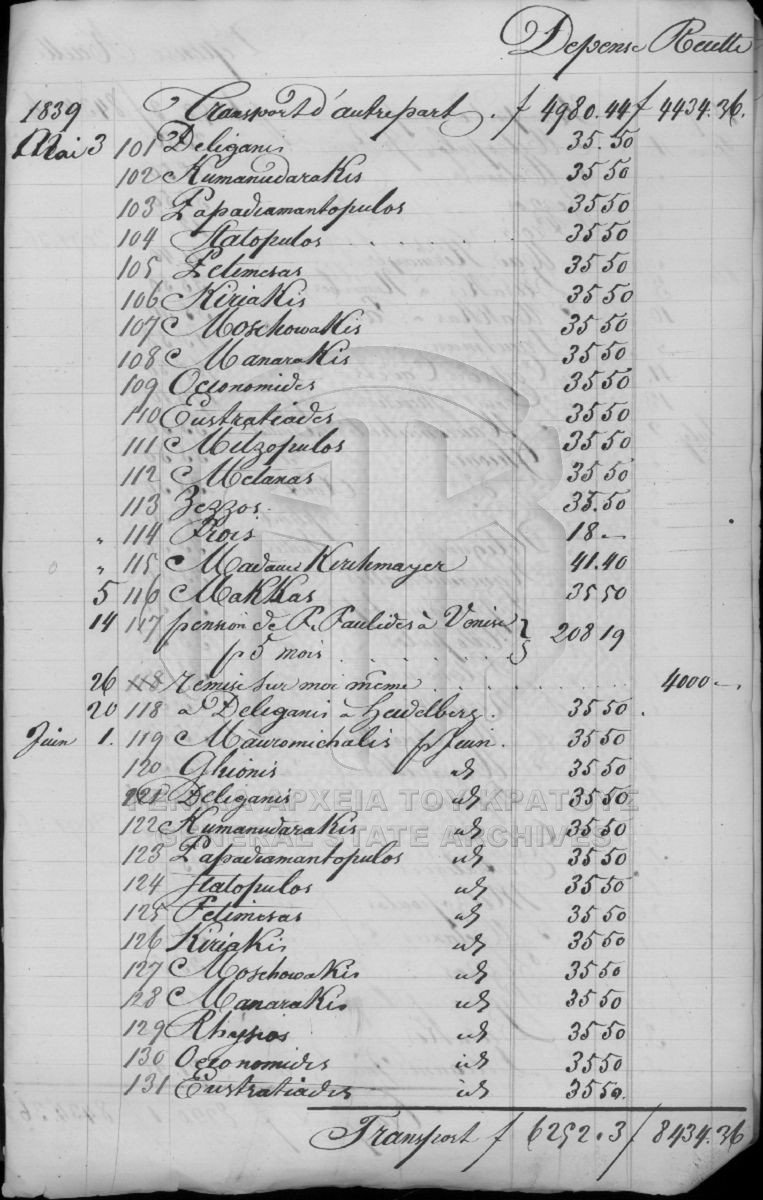 Depense Recette
1839 Transport d'autrepart . f 4980.44 f 4434.36.
Mai 3 101 Deliganis 35.50
102 Kumanudarakis 35 50
103 Papadiamantopulos 35 50
104 Statopulos . . . . . 35 50
105 Petimesas 35 50
106 Kiriakis 35 50
107 Moschowakis 35 50
108 Manarakis 35 50
109 Oeconomides 35 50
110 Eustratiades 35 50
111 Melzopulos 35 50
112 Metanas 35 50
113 Zezzos 35.50
" 114 Prois 18 –
" 115 Madame Kirchmayer 41.40
5 116 Makkas 35 50
14 117 pension de P. Paulides à Venise } 208 19
p 5 mois . . . . . . . .
26 118 remise sur moi même . . . . . . . . 4000 – .
20 118 à Deliganis à Heidelberg . 35 50 .
Juin 1. 119 Mauromichalis p Juin . 35 50
120 Ghionis id 35 50
121 Deliganis id 35 50
ΓΕΝΙΚΑ ΑΡΧΕΙΑ ΤΟΥ ΚΡΑΤΟΥΣ
122 Kumanudarakis id 35 50
GENERAL STATE ARCHIVES
123 Papadiamantopulos id 35 50
124 Statopulos id 35 50
125 Petimesas id 35 50
126 Kiriakis id 35 50
127 Moschowakis id 35 50
128 Manarakis id 35 50
129 Rhysios id 35 50
130 Oeconomides id 35 50
131 Eustratiades id 35 50.
Transport f 6252.3 f 8434.36